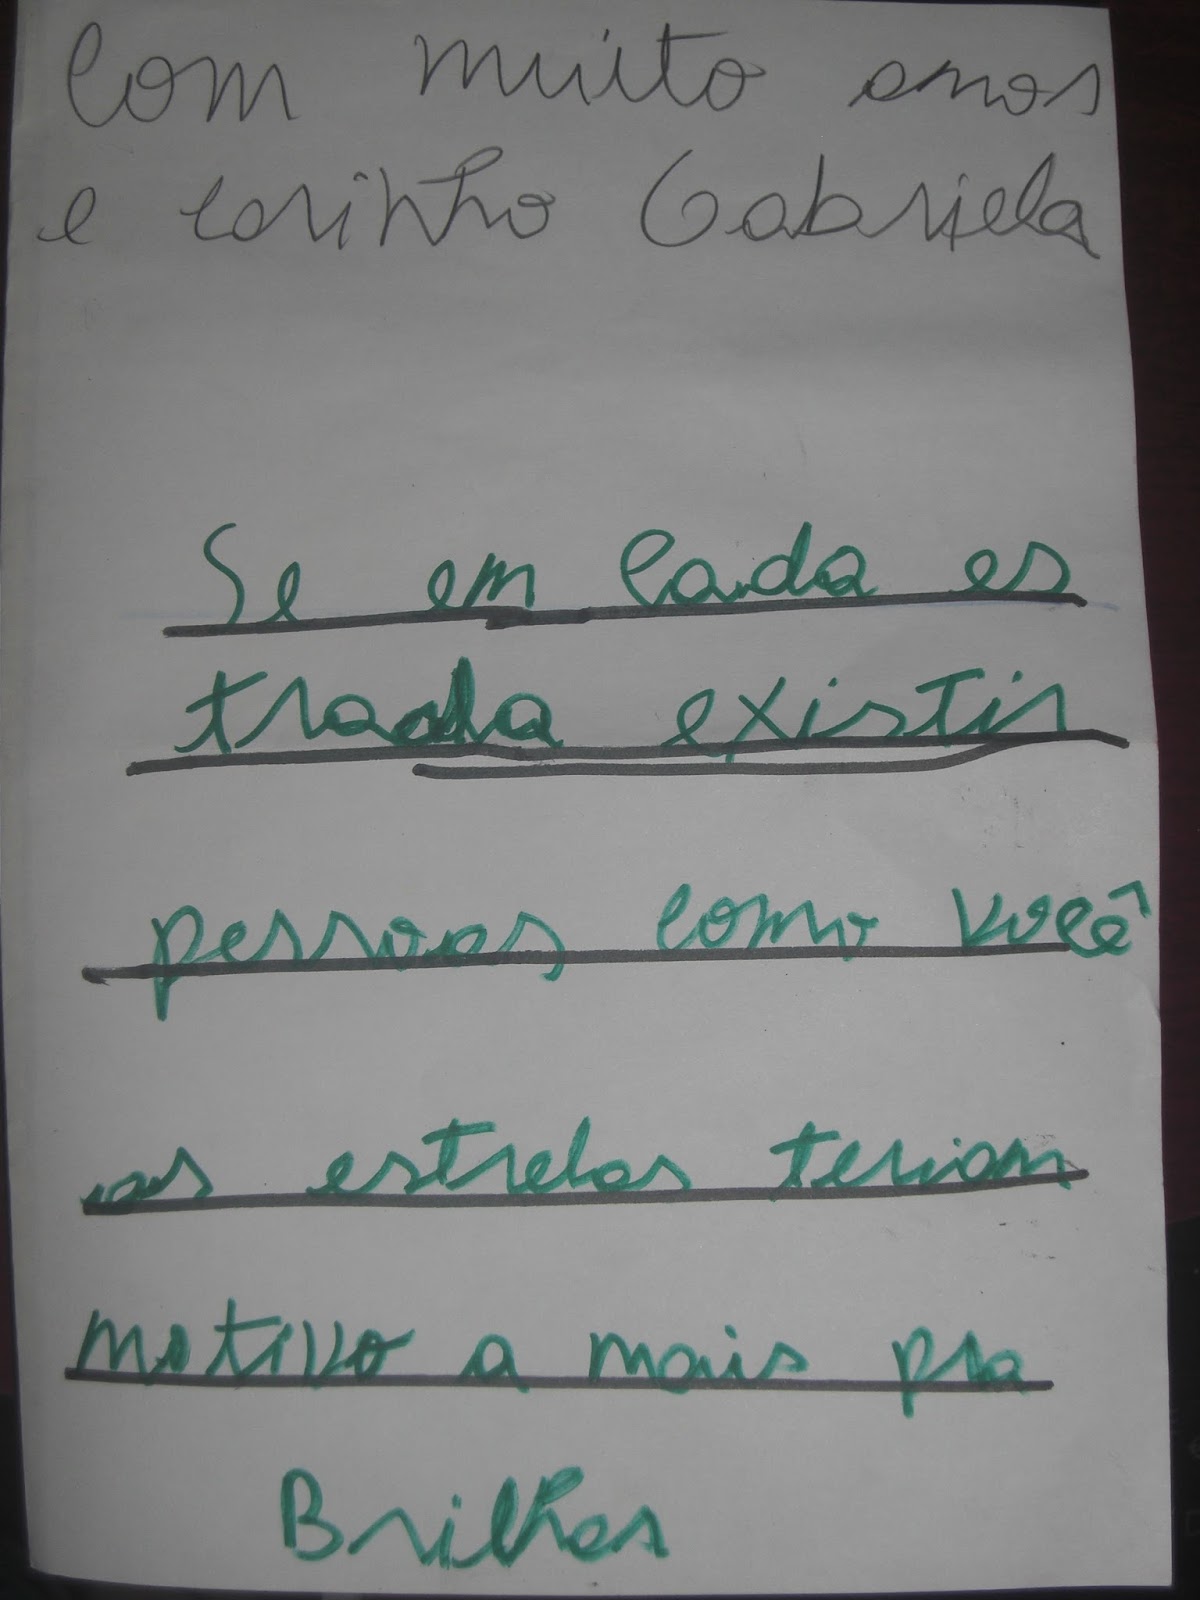 Com muito amor
e carinho Gabriela
Se em cada es
trada existir
pessoas como você
as estrelas teriam
motivo a mais pra
Brilhar